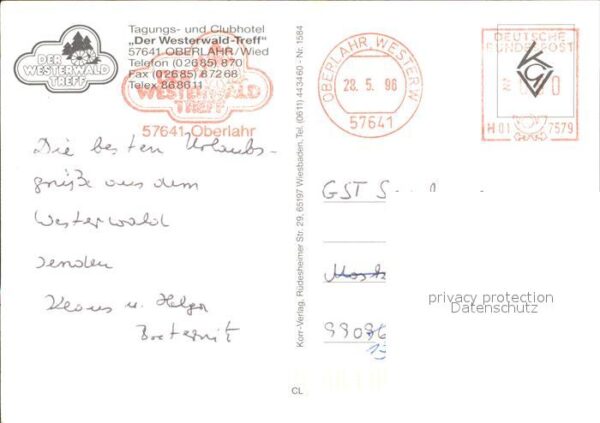 DER
WESTERWALD
TREFF
Tagungs- und Clubhotel
„Der Westerwald-Treff"
57641 OBERLAHR/Wied
Telefon (02685) 870
Fax (02685) 87268
Telex 868611
WESTERWALD
TREFF
57641 Oberlahr
OBERLAHR, WESTERW
28.5.96
57641
DEUTSCHE
BUNDESPOST
H01 7579
Die besten Urlaubs-
grüße aus dem
Westerwald
senden
Klaus u. Helga
Korr-Verlag, Rüdesheimer Str. 29, 65197 Wiesbaden, Tel. (0611) 443460 - Nr. 1584
GST
99096
privacy protection
Datenschutz
CL